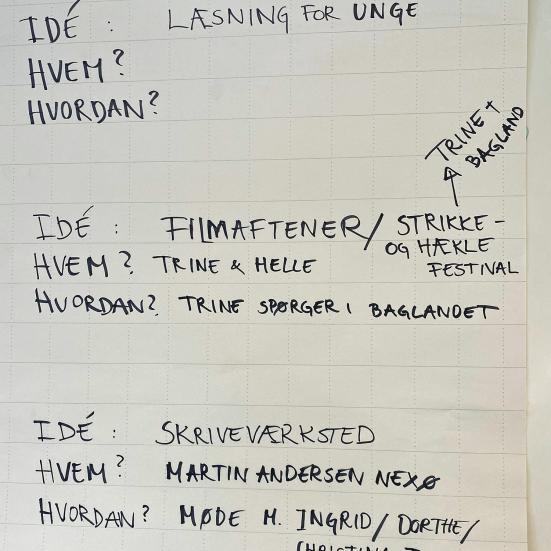 IDÉ : LÆSNING FOR UNGE
HVEM?
HVORDAN?
TRINE +
BAGLAND
IDÉ : FILMAFTENER/ STRIKKE-
OG HÆKLE
FESTIVAL
HVEM? TRINE & HELLE
HVORDAN? TRINE SPØRGER I BAGLANDET
IDÉ : SKRIVEVÆRKSTED
HVEM? MARTIN ANDERSEN NEXØ
HVORDAN? MØDE M. INGRID/ DORTHE/